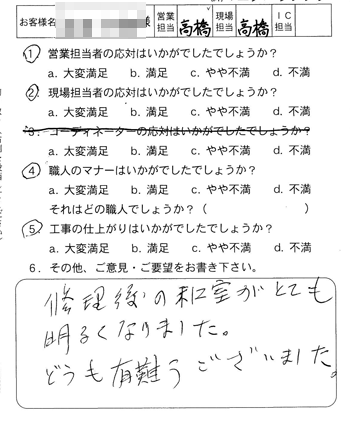 お客様名 様 営業担当 高橋 現場担当 高橋 IC担当
1 営業担当者の応対はいかがでしたでしょうか?
a. 大変満足 b. 満足 c. やや不満 d. 不満
2 現場担当者の応対はいかがでしたでしょうか?
a. 大変満足 b. 満足 c. やや不満 d. 不満
3. コーディネーターの応対はいかがでしたでしょうか?
a. 大変満足 b. 満足 c. やや不満 d. 不満
4 職人のマナーはいかがでしたでしょうか?
a. 大変満足 b. 満足 c. やや不満 d. 不満
それはどの職人でしょうか?( )
5 工事の仕上がりはいかがでしたでしょうか?
a. 大変満足 b. 満足 c. やや不満 d. 不満
6. その他、ご意見・ご要望をお書き下さい。
修理後の和室がとても
明るくなりました。
どうも有難うございました。